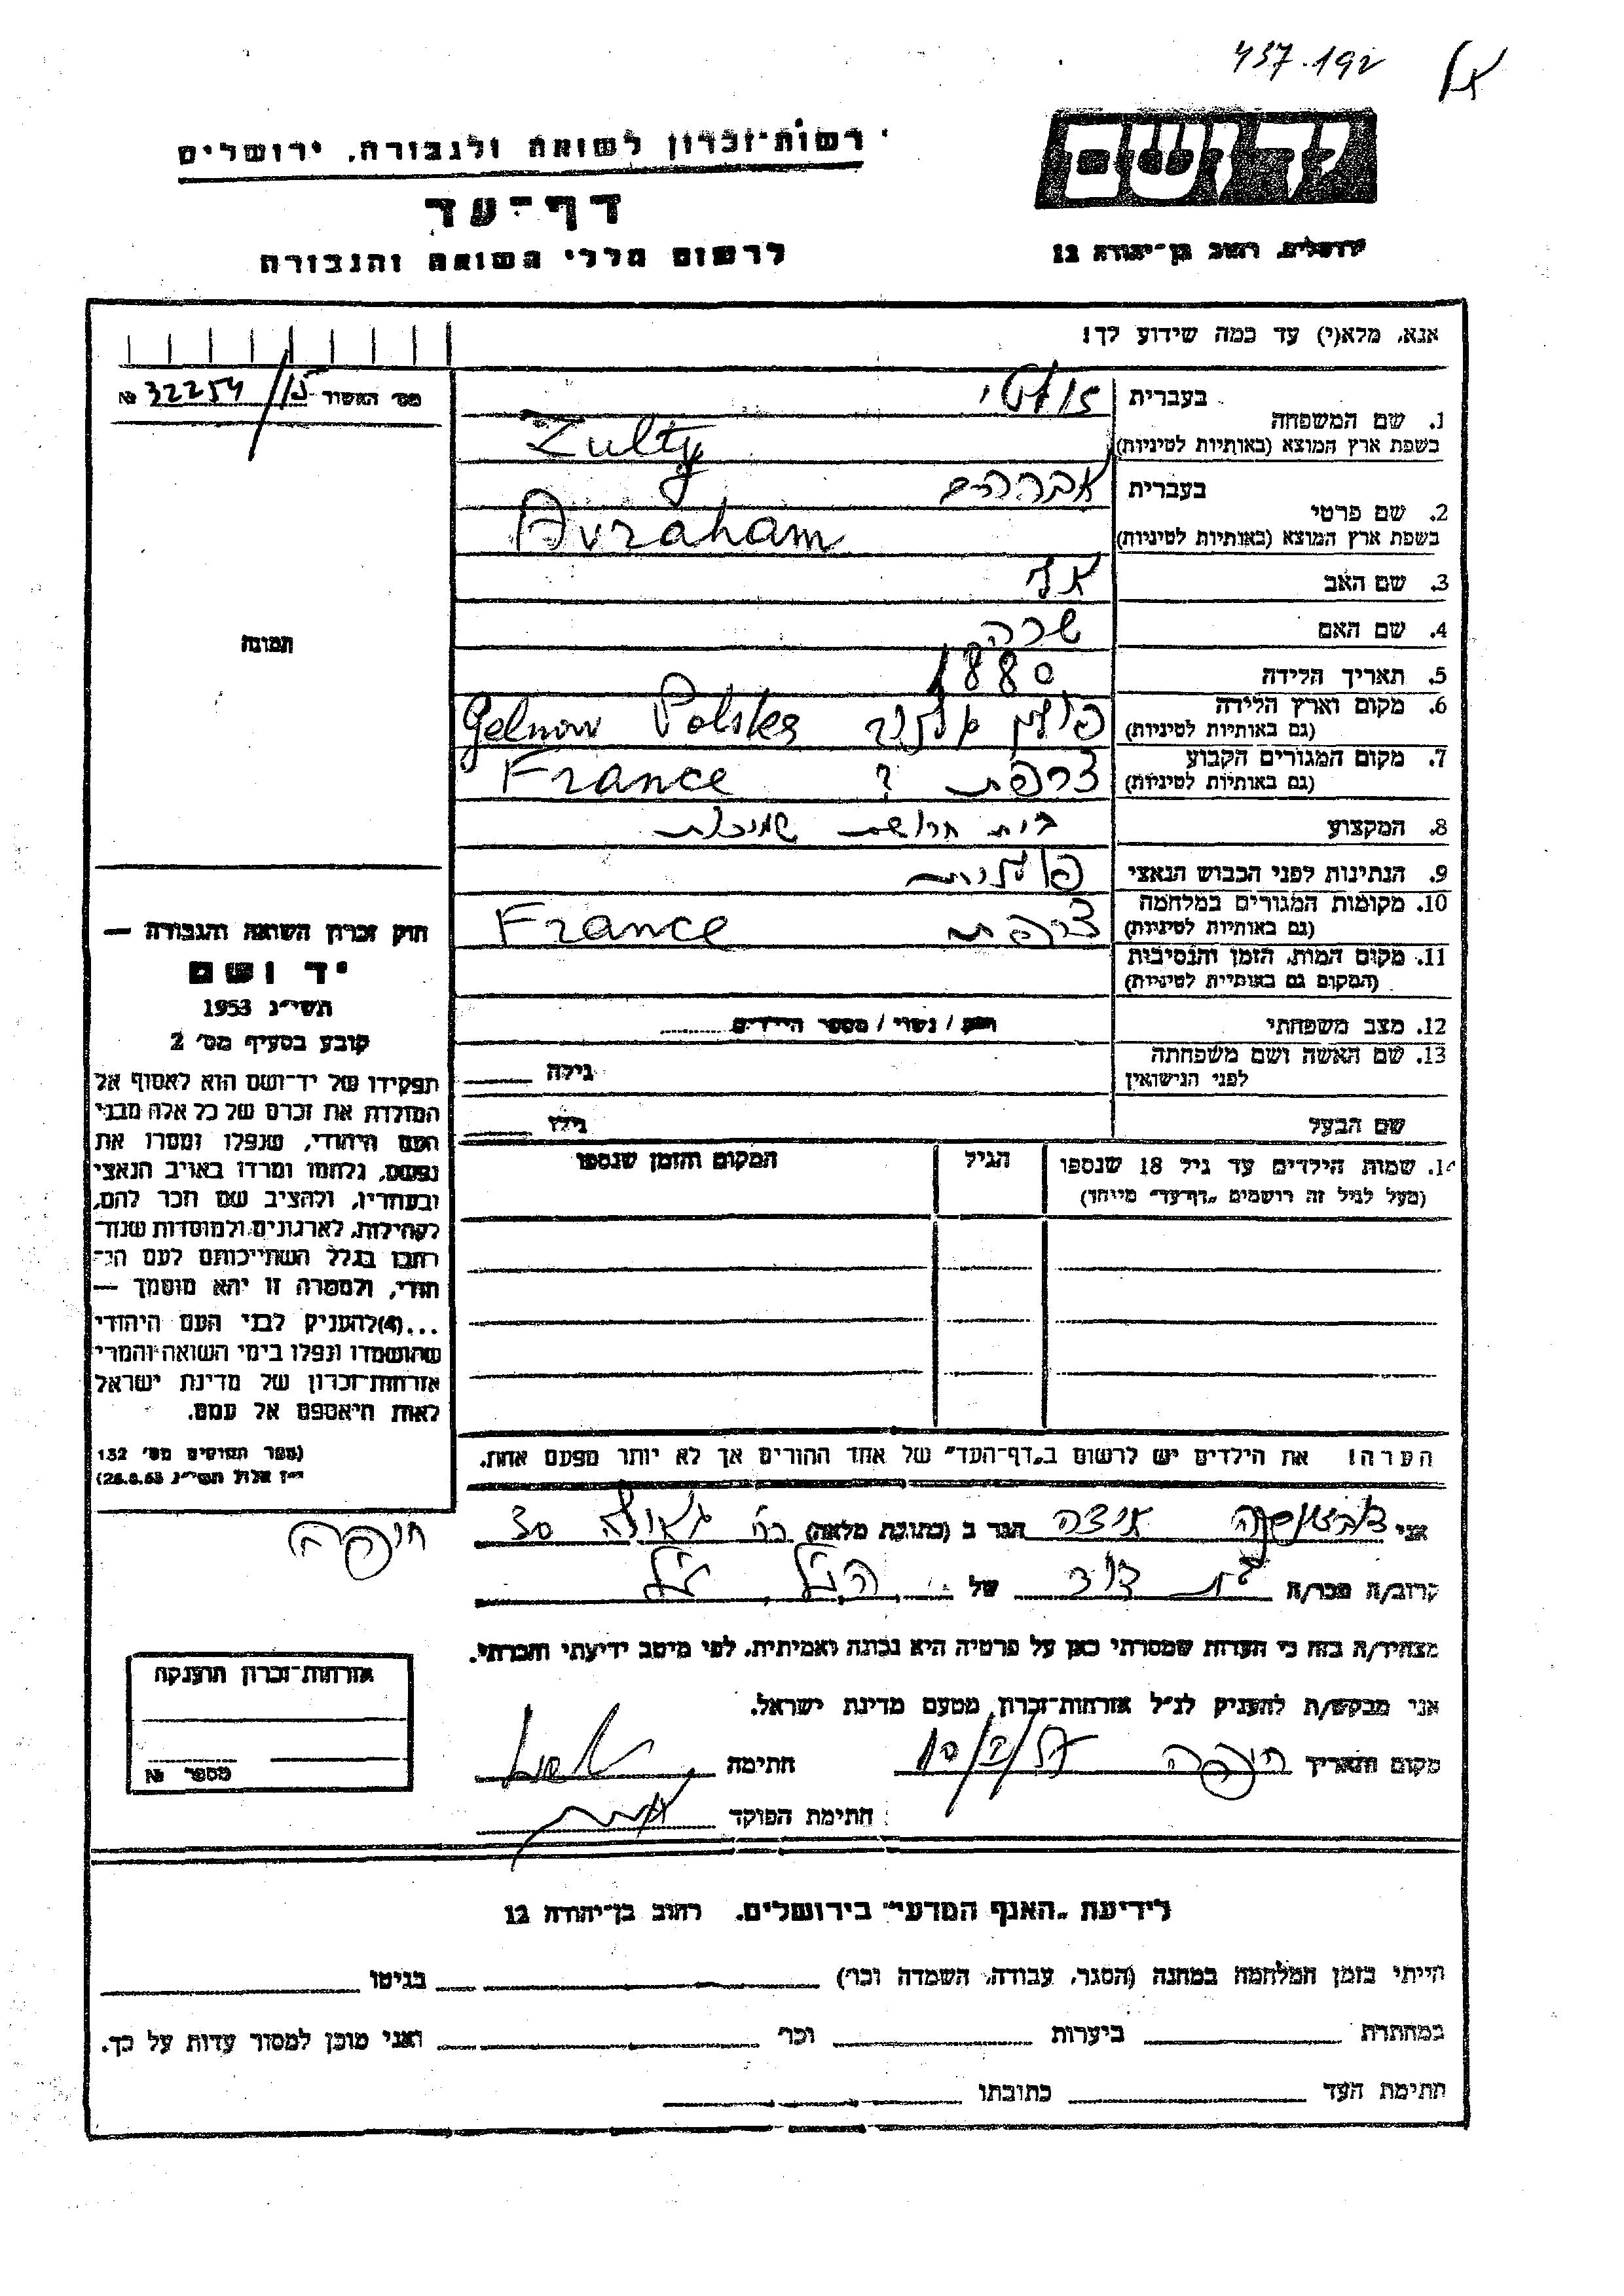 437.192
רשות־זכרון לשואה ולגבורה, ירושלים
יד ושם
דף־עד
ירושלים, רחוב בן־יהודה 12
לרשום חללי השואה והגבורה
אנא, מלא(י) עד כמה שידוע לך!
מס׳ האשור № 32254/15
בעברית זולטי
1. שם המשפחה
בשפת ארץ המוצא (באותיות לטיניות) Zulty
בעברית אברהם
2. שם פרטי
בשפת ארץ המוצא (באותיות לטיניות) Avraham
3. שם האב
4. שם האם שרה
תמונה
5. תאריך הלידה 1880
6. מקום וארץ הלידה פולין Gelnow Polska
(גם באותיות לטיניות)
7. מקום המגורים הקבוע צרפת ? France
(גם באותיות לטיניות)
8. המקצוע בית חרושת שמיכות
9. הנתינות לפני הכבוש הנאצי פולנית
10. מקומות המגורים במלחמה צרפת France
(גם באותיות לטיניות)
11. מקום המות, הזמן והנסיבות
(המקום גם באותיות לטיניות)
12. מצב משפחתי רווק / נשוי / מספר הילדים
13. שם האשה ושם משפחתה
לפני הנישואין גילה
שם הבעל גילו
14. שמות הילדים עד גיל 18 שנספו הגיל המקום והזמן שנספו
(מעל לגיל זה רושמים „דף־עד״ מיוחד)
חוק זכרון השואה והגבורה —
יד ושם
תשי״ג 1953
קובע בסעיף מס׳ 2
תפקידו של יד־ושם הוא לאסוף אל
המולדת את זכרם של כל אלה מבני
העם היהודי, שנפלו ומסרו את
נפשם, נלחמו ומרדו באויב הנאצי
ובעוזריו, ולהציב שם וזכר להם,
לקהילות, לארגונים ולמוסדות שנח־
רבו בגלל השתייכותם לעם הי־
הודי, ולמטרה זו יהא מוסמך —
...(4)להעניק לבני העם היהודי
שהושמדו ונפלו בימי השואה והמרי
אזרחות־זכרון של מדינת ישראל
לאות היאספם אל עמם.
(ספר החוקים מס׳ 132
י״ז אלול תשי״ג 28.8.53)
הערה! את הילדים יש לרשום ב„דף־העד״ של אחד ההורים אך לא יותר מפעם אחת.
אני איצה הגר ב (כתובת מלאה) רח׳ גאולה 30
חיפה
קרוב/ה מכר/ה בת דוד של הנ״ל
מצהיר/ה בזה כי העדות שמסרתי כאן על פרטיה היא נכונה ואמיתית, לפי מיטב ידיעתי והכרתי.
אני מבקש/ת להעניק לנ״ל אזרחות־זכרון מטעם מדינת ישראל.
מקום ותאריך חיפה חתימה
חתימת הפוקד
אזרחות־זכרון הוענקה
מספר №
לידיעת „האגף המדעי״ בירושלים, רחוב בן־יהודה 12
הייתי בזמן המלחמה במחנה (הסגר, עבודה, השמדה וכו׳) בגיטו
במחתרת ביערות וכו׳ ואני מוכן למסור עדות על כך.
חתימת העד כתובתו